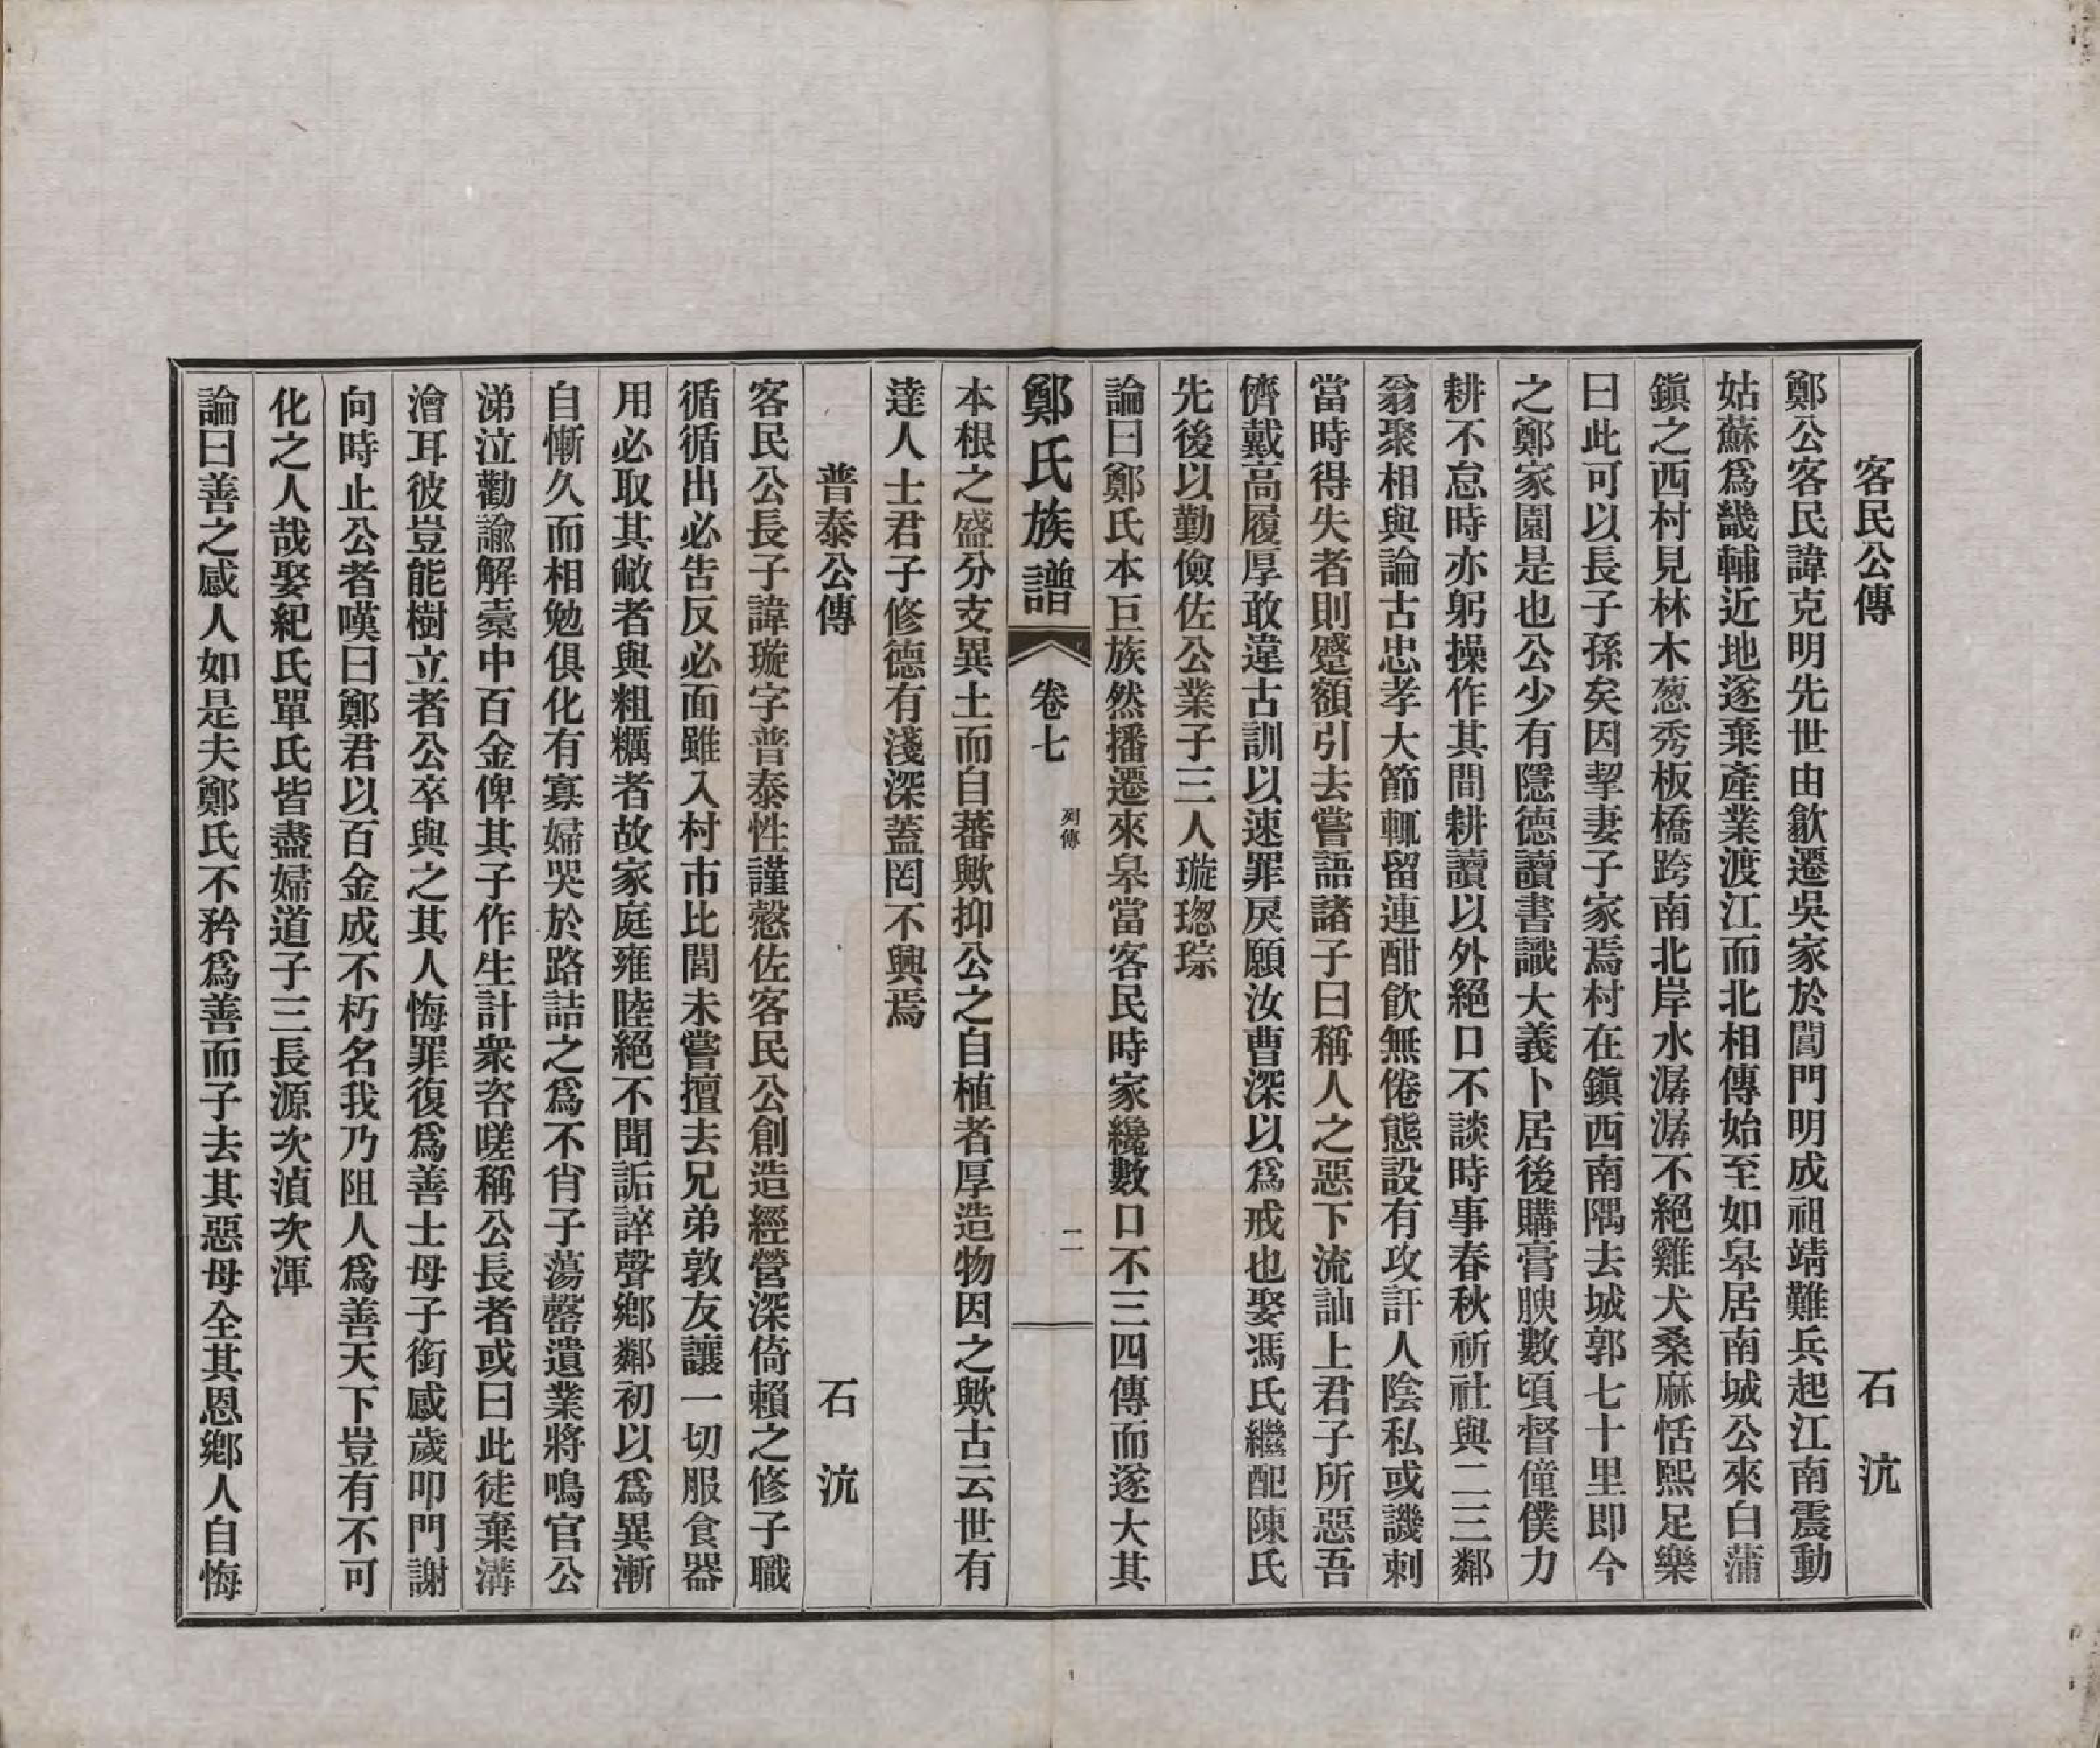 客民公傳　石沆
鄭公客民諱克明先世由歙遷吳家於閶門明成祖靖難兵起江南震動
姑蘇爲畿輔近地遂棄產業渡江而北相傳始至如皋居南城公來白蒲
鎭之西村見林木葱秀板橋跨南北岸水潺潺不絕雞犬桑麻恬熙足樂
曰此可以長子孫矣因挈妻子家焉村在鎭西南隅去城郭七十里即今
之鄭家園是也公少有隱德讀書識大義卜居後購膏腴數頃督僮僕力
耕不怠時亦躬操作其間耕讀以外絕口不談時事春秋祈社與二三鄰
翁聚相與論古忠孝大節輒留連酣飲無倦態設有攻訐人陰私或譏刺
當時得失者則蹙額引去嘗語諸子曰稱人之惡下流訕上君子所惡吾
儕戴高履厚敢違古訓以速罪戾願汝曹深以爲戒也娶馮氏繼配陳氏
先後以勤儉佐公業子三人璇璁琮
論曰鄭氏本巨族然播遷來皋當客民時家纔數口不三四傳而遂大其
鄭氏族譜　卷七　列傳　二
本根之盛分支異土而自蕃歟抑公之自植者厚造物因之歟古云世有
達人士君子修德有淺深蓋罔不興焉
普泰公傳　石沆
客民公長子諱璇字普泰性謹慤佐客民公創造經營深倚賴之修子職
循循出必告反必面雖入村市比閭未嘗擅去兄弟敦友讓一切服食器
用必取其敝者與粗糲者故家庭雍睦絕不聞詬誶聲鄉鄰初以爲異漸
自慚久而相勉俱化有寡婦哭於路詰之爲不肖子蕩罄遺業將鳴官公
涕泣勸諭解橐中百金俾其子作生計衆咨嗟稱公長者或曰此徒棄溝
澮耳彼豈能樹立者公卒與之其人悔罪復爲善士母子銜感歲叩門謝
向時止公者嘆曰鄭君以百金成不朽名我乃阻人爲善天下豈有不可
化之人哉娶紀氏單氏皆盡婦道子三長源次湞次渾
論曰善之感人如是夫鄭氏不矜爲善而子去其惡母全其恩鄉人自悔